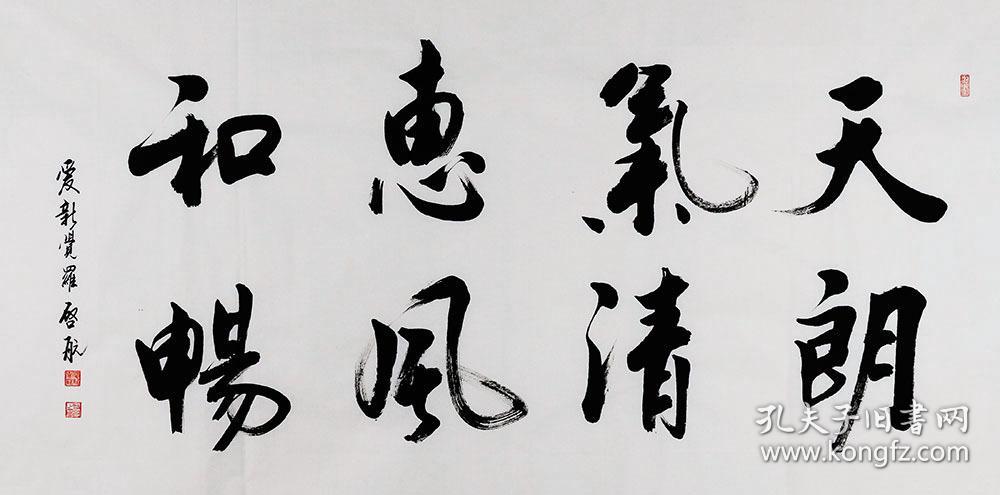 天朗
氣清
惠風
和暢
爱新覺羅啓航
孔夫子旧書网
www.kongfz.com